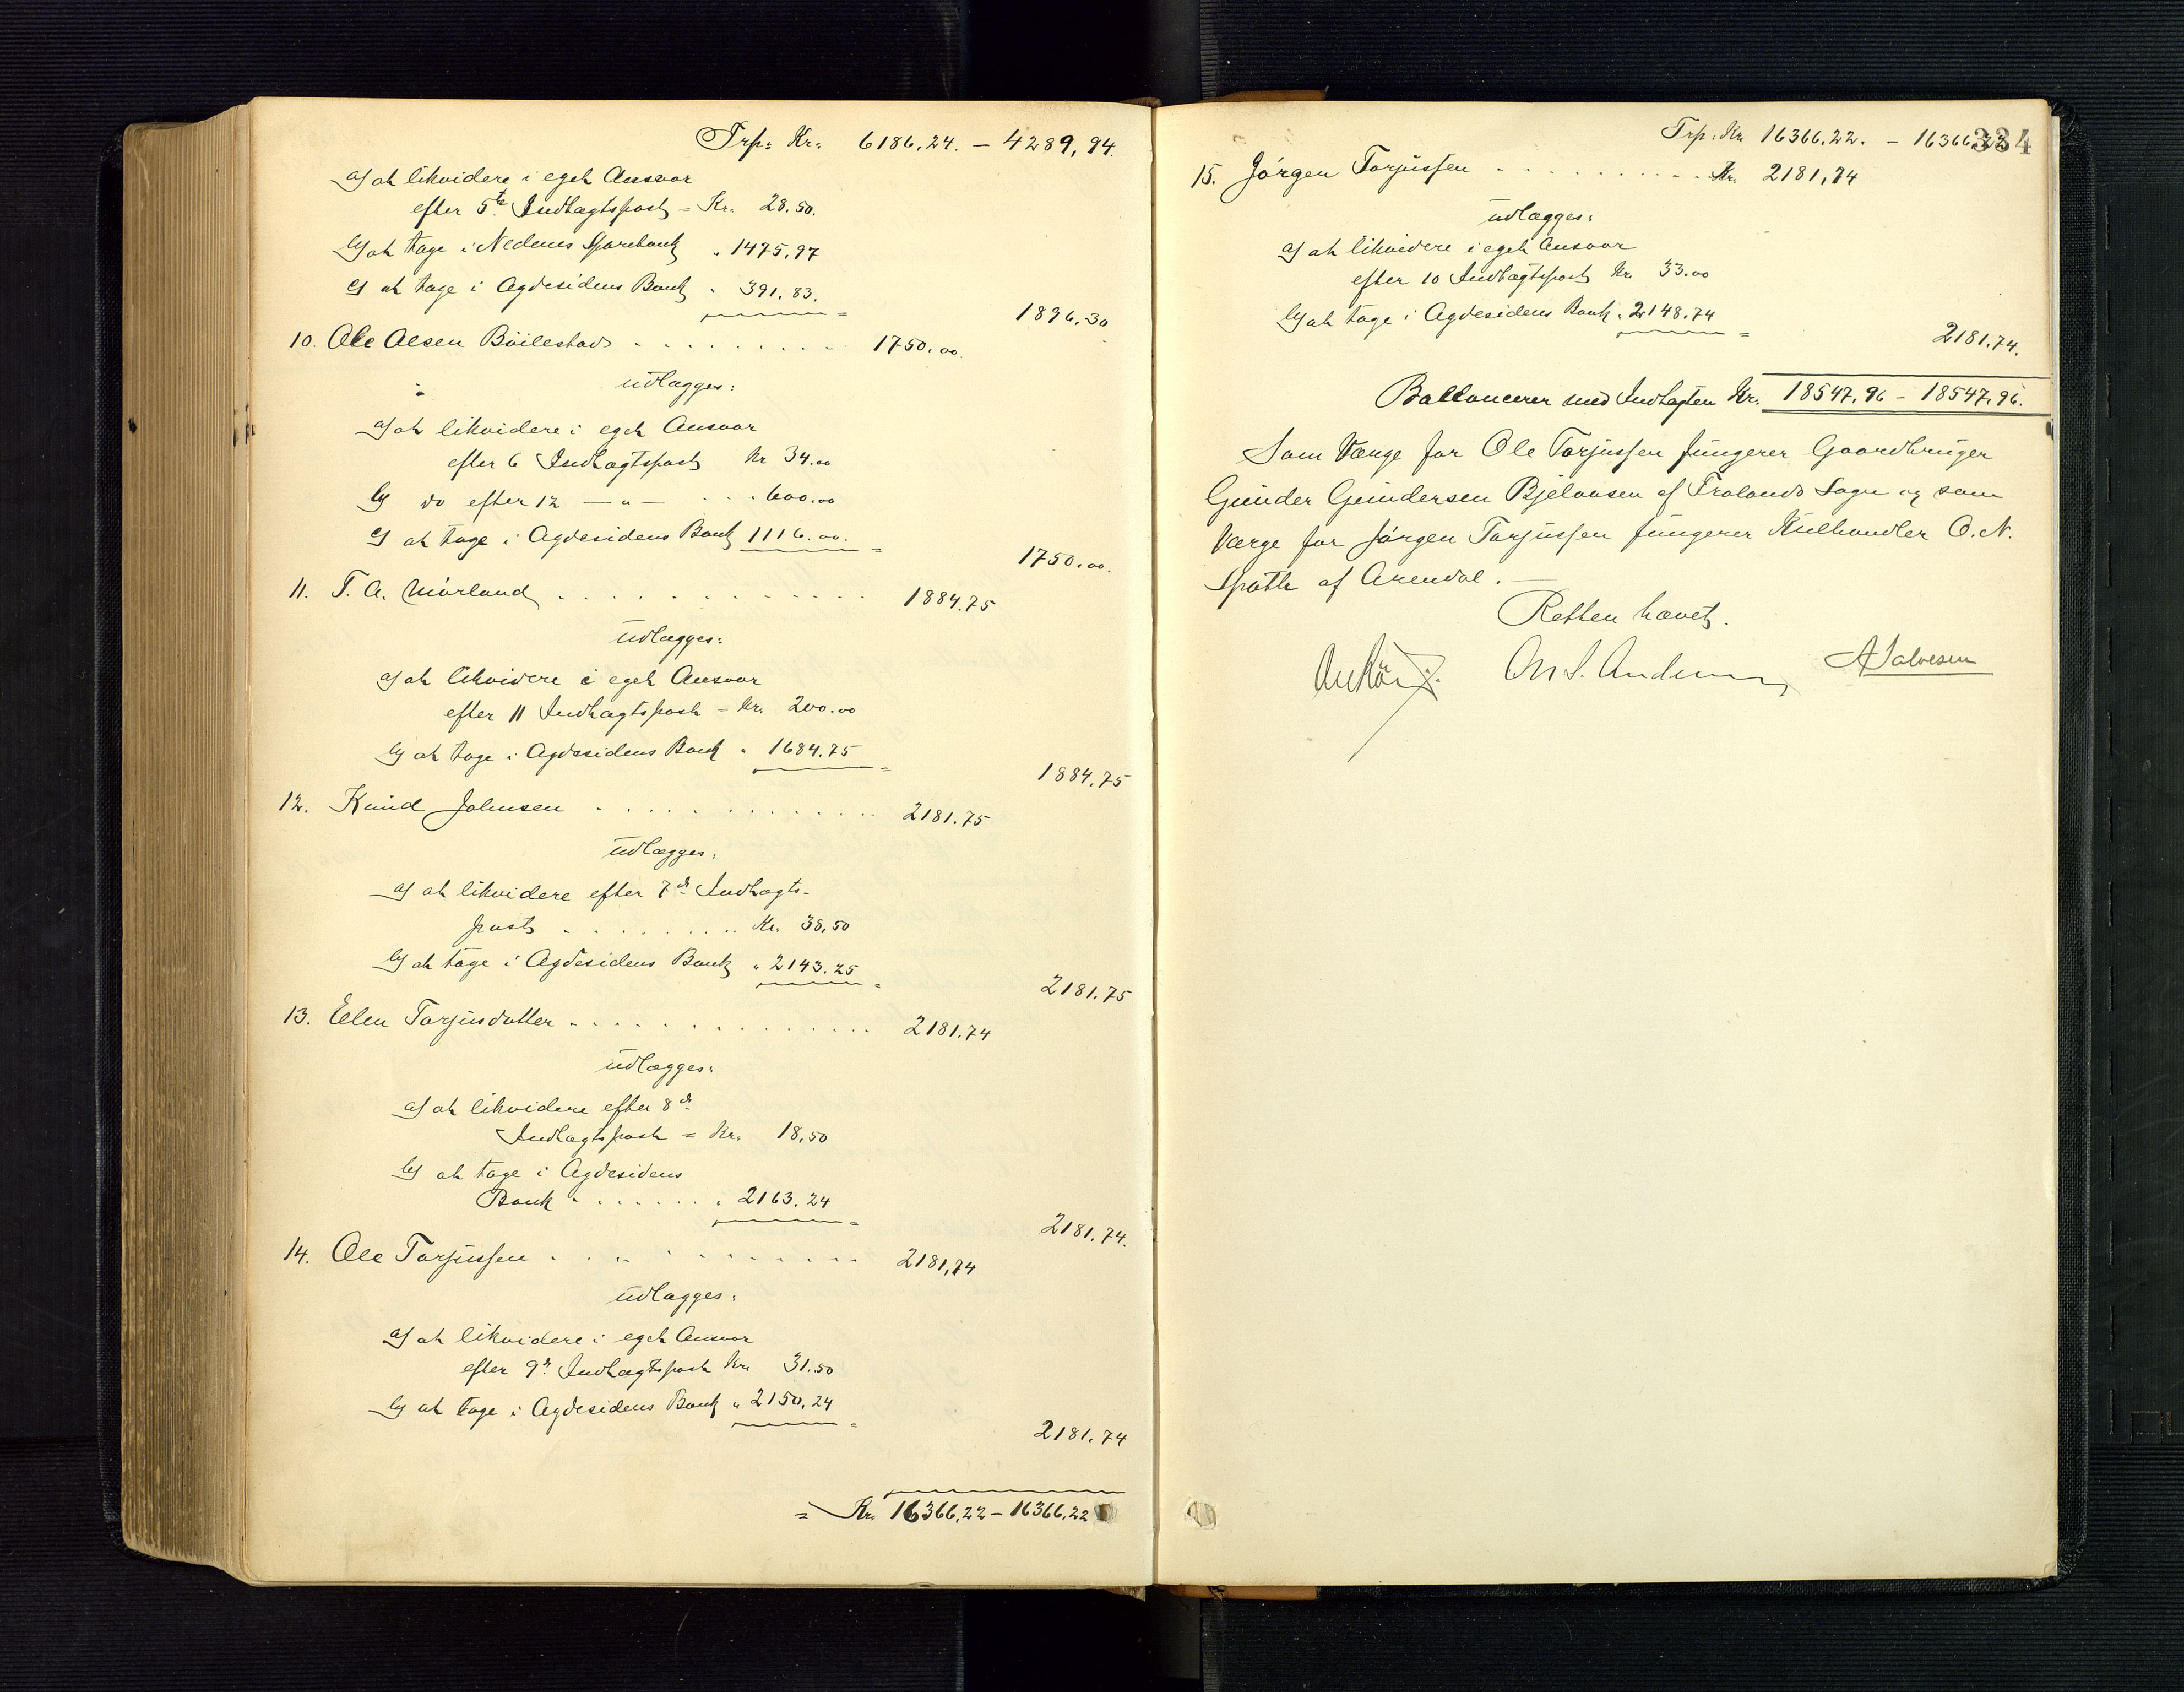 Trp. Kr. 6186.24. – 4289,94.
a) at likvidere i eget Ansvar
efter 5te Indtægtspost = Kr. 28.50.
b) at tage i Nedenes Sparebank " 1475,97
c) at tage i Agdesidens Bank " 391.83. =
1896.30
10. Ole Olsen Böilestad . . . . . . . . . 1750.00.
udlægges:
a) at likvidere i eget Ansvar
efter 6 Indtægtspost Kr 34.00
b) do efter 12 — " — . . . 600.00
c) at tage i Agdesidens Bank 1116.00. =
1750.00.
11. T. A. Mörland . . . . . . . . . . . . 1884.75
udlægges:
a) at likvidere i eget Ansvar
efter 11 Indtægtspost = Kr. 200.00
b) at tage i Agdesidens Bank " 1684.75 =
1884.75
12. Knud Johnsen . . . . . . . . . . . . 2181.75
udlægges:
a) at likvidere efter 7de Indtægts-
post . . . . . . . . Kr. 38,50
b) at tage i Agdesidens Bank " 2143.25 =
2181.75
13. Elen Torjusdatter . . . . . . . . . . . . . 2181.74
udlægges:
a) at likvidere efter 8de
Indtægtspost = Kr. 18,50
b) at tage i Agdesidens
Bank . . . . . . . " 2163.24 =
2181.74.
14. Ole Torjussen . . . . . . . . . . . 2181,74
udlægges:
a) at likvidere i eget Ansvar
efter 9de Indtægtspost Kr. 31.50
b) at tage i Agdesidens Bank " 2150.24 =
2181.74
= Kr. 16366,22 – 16366,22
334
Trp. Kr. 16366.22. – 16366.22
15. Jörgen Torjussen . . . . . . . . . . Kr. 2181,74
udlægges:
a) at likvidere i eget Ansvar
efter 10 Indtægtspost Kr. 33.00
b) at tage i Agdesidens Bank " 2148.74 =
2181.74.
Ballancerer med Indtægten Kr. 18547.96 – 18547.96.
Som Værge for Ole Torjussen fungerer Gaardbruger
Gunder Gundersen Bjelaasen af Frolands Sogn og som
Værge for Jörgen Torjussen fungerer Kulhandler O. N.
Späth af Arendal. —
Retten hævet.
A Salvesen